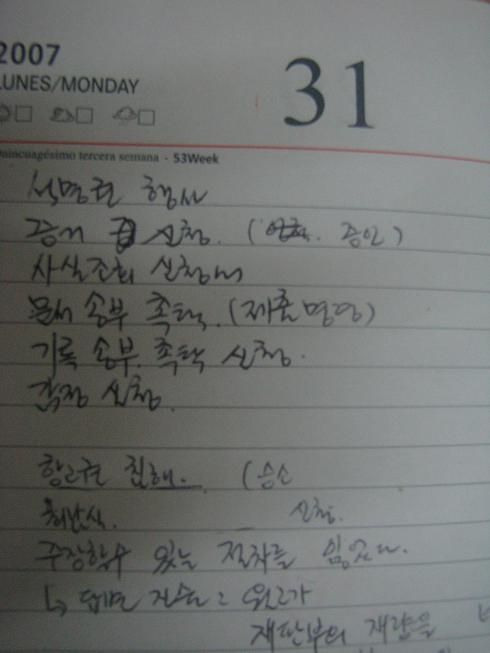 2007
LUNES/MONDAY
31
quincuagésimo tercera semana - 53Week
석명권 행사
증거 신청. ( 증인)
사실조회 신청서
문서 송부 촉탁. (제출명령)
기록 송부 촉탁 신청.
감정 신청.
항고권 침해. (승소
신청.
주장할수 있는 절차를 잃었다.
원고가
재판부의 재량을